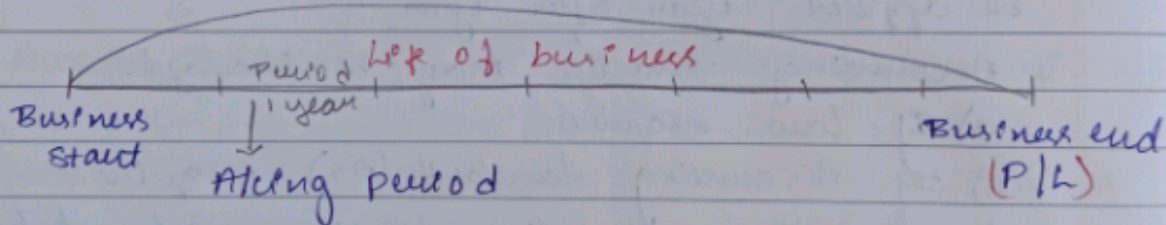 Life of business
Period
1 year
Business start
A/cing period
Business end
(P/L)